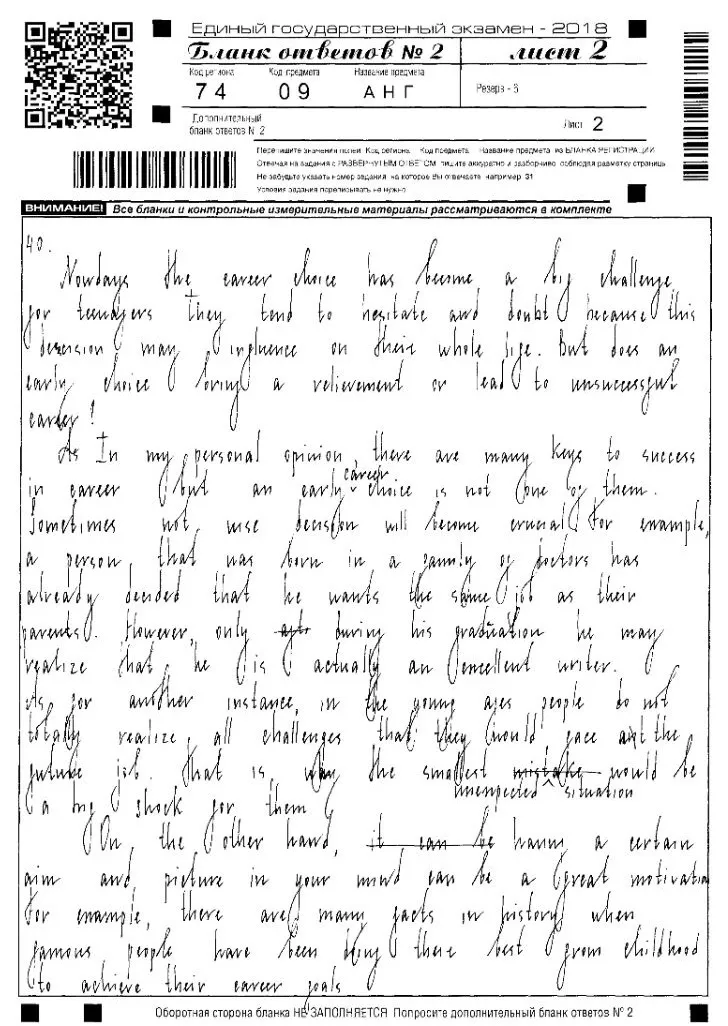 Единый государственный экзамен - 2018
Бланк ответов № 2 лист 2
Код региона Код предмета Название предмета
74 09 АНГ
Резерв - 6
Дополнительный
бланк ответов № 2
Лист 2
Перепишите значения полей Код региона Код предмета Название предмета из БЛАНКА РЕГИСТРАЦИИ
Отвечая на задания с РАЗВЕРНУТЫМ ОТВЕТОМ пишите аккуратно и разборчиво соблюдая разметку страницы
Не забудьте указать номер задания на которое Вы отвечаете например 31
Условия задания переписывать не нужно
ВНИМАНИЕ! Все бланки и контрольные измерительные материалы рассматриваются в комплекте
40.
Nowdays the career choice has become a big challenge
for teenagers They tend to hesitate and doubt because this
may influence on their whole life. But does an
early choice bring a relievement or lead to unsuccessful
career?
As In my personal opinion, there are many keys to success
in career but an early career choice is not one of them.
Sometimes not wise decision will become crucial For example,
a person, that was born in a family of doctors has
already decided that he wants the same job as their
parents. However, only during his graduation he may
realize that he is actually an excellent writer.
As for another instance, in the young ages people do not
totally realize all challenges that they would face at the
future job. That is why the smallest mistake would be
unexpected situation
a big shock for them
On the other hand, it can be having a certain
aim and picture in your mind can be a great motivation
For example, there are many facts in history when
famous people have been doing there best from childhood
to achieve their career goals
Оборотная сторона бланка НЕ ЗАПОЛНЯЕТСЯ Попросите дополнительный бланк ответов № 2